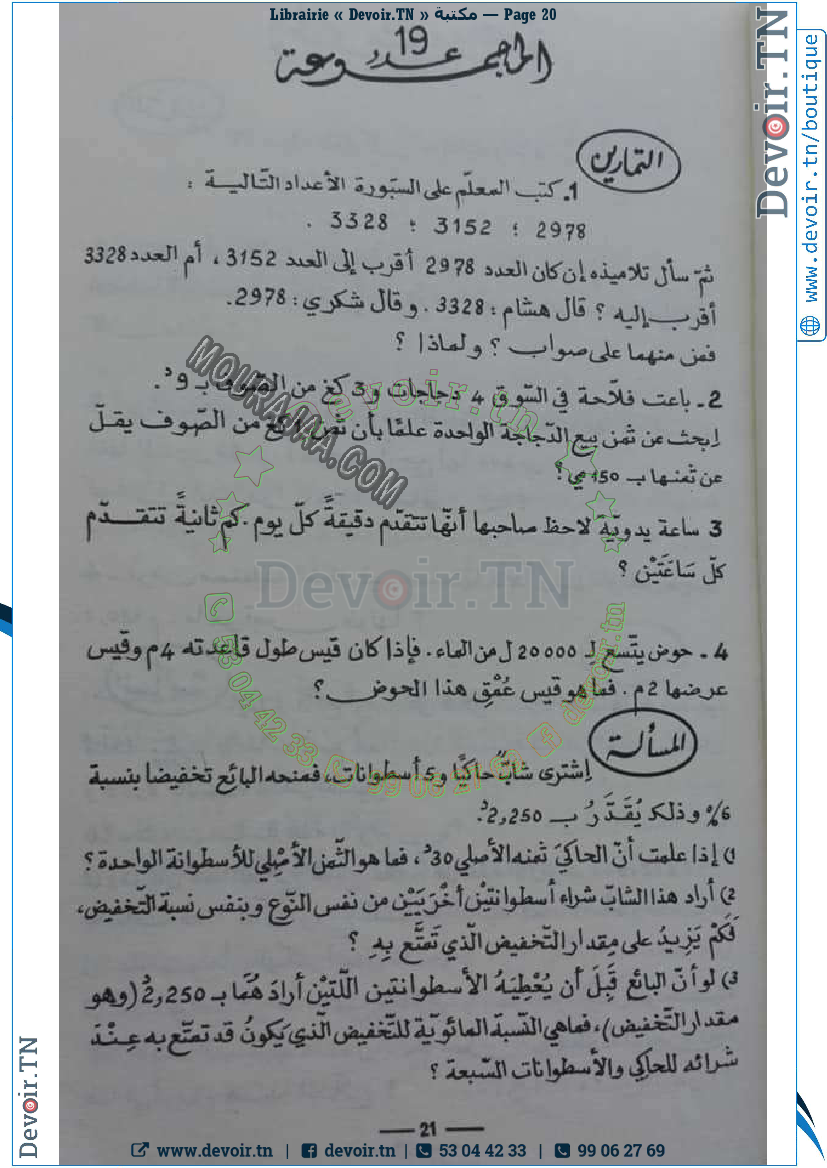 Librairie « Devoir.TN » مكتبة — Page 20
المجموعة عدد 19
التمارين
1. كتب المعلّم على السّبّورة الأعداد التّاليــة :
2978 ؛ 3152 ؛ 3328 .
ثمّ سأل تلاميذه إن كان العدد 2978 أقرب إلى العدد 3152 ، أم العدد 3328
أقرب إليه ؟ قال هشام : 3328 . وقال شكري : 2978.
فمن منهما على صواب ؟ ولماذا ؟
2 ـ باعت فلاّحة في السّوق 4 دجاجات و 3 كغ من الصّوف بـ 9د.
إبحث عن ثمن بيع الدّجاجة الواحدة علمًا بأن ثمن 1 كغ من الصّوف يقلّ
عن ثمنها بـ 150 مي ؟
3 ساعة يدويّة لاحظ صاحبها أنّها تتقدّم دقيقةً كلّ يوم . كم ثانيةً تتقــدّم
كلّ سَاعَتَيْن ؟
4 ـ حوض يتّسع لِـ 20000 ل من الماء . فإذا كان قيس طول قاعدته 4 م وقيس
عرضها 2 م . فما هو قيس عُمْقِ هذا الحوض ؟
المسألة
إشترى شابٌّ حاكيًا و 5 أسطوانات، فمنحه البائع تخفيضا بنسبة
6% وذلك يُقَدَّرُ بـ 2,250د.
1) إذا علمت أنّ الحاكيَ ثمنه الأصلي 30د ، فما هو الثّمن الأصْلِي للأسطوانة الواحدة ؟
2) أراد هذا الشّابّ شراء أسطوانتيْن أخْرَيَيْن من نفس النّوع وبنفس نسبة التّخفيض،
فَكَمْ يَزِيدُ على مِقدار التّخفيض الّذي تَمَتَّع بِهِ ؟
3) لو أنّ البائع قَبِلَ أن يُعْطِيَهُ الأسطوانتين اللّتيْن أرادَهُمَا بـ 2,250د (وهو
مقدار التّخفيض) ، فما هي النّسبة المائويّة للتّخفيض الّذي يَكونُ قد تمتّع به عِنْدَ
شرائه للحاكي والأسطوانات السّبعة ؟
21
Devoir.TN
www.devoir.tn/boutique
MOURAJAA.COM
devoir.tn
Devoir.TN
53 04 42 33
99 06 27 69
devoir.tn
Devoir.TN
www.devoir.tn | devoir.tn | 53 04 42 33 | 99 06 27 69